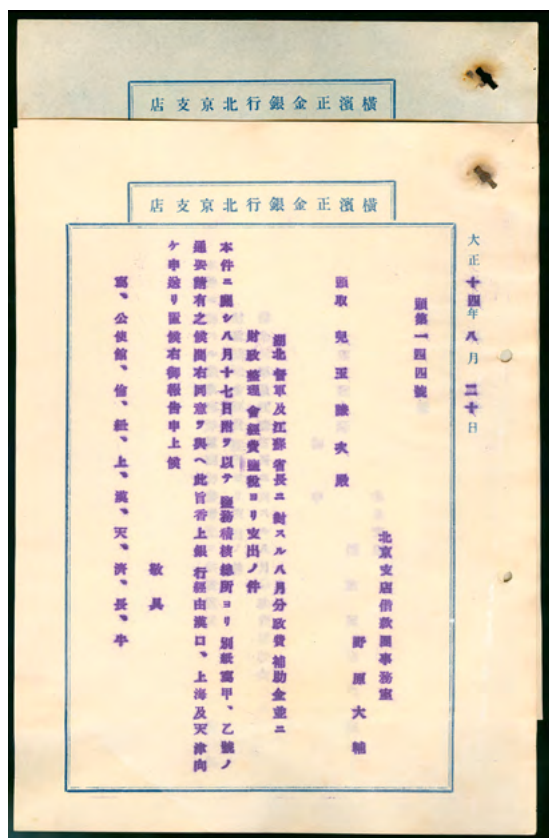 店支京北行銀金正濱橫
店支京北行銀金正濱橫
大正十四年八月二十日
頭第一四四號
北京支店借款團事務室
野原大輔
頭取兒玉謙次殿
湖北督軍及江蘇省長ニ對スル八月分政費補助金並ニ
財政整理會經費鹽稅ヨリ支出ノ件
本件ニ關シ八月十七日附ヲ以テ鹽務稽核總所ヨリ別紙寫甲、乙號ノ
通要請有之候間右同意ヲ與ヘ此旨香上銀行經由漢口、上海及天津向
ケ申送リ置候右御報告申上候
敬具
寫、公使館、倫、紐、上、漢、天、濟、長、牛